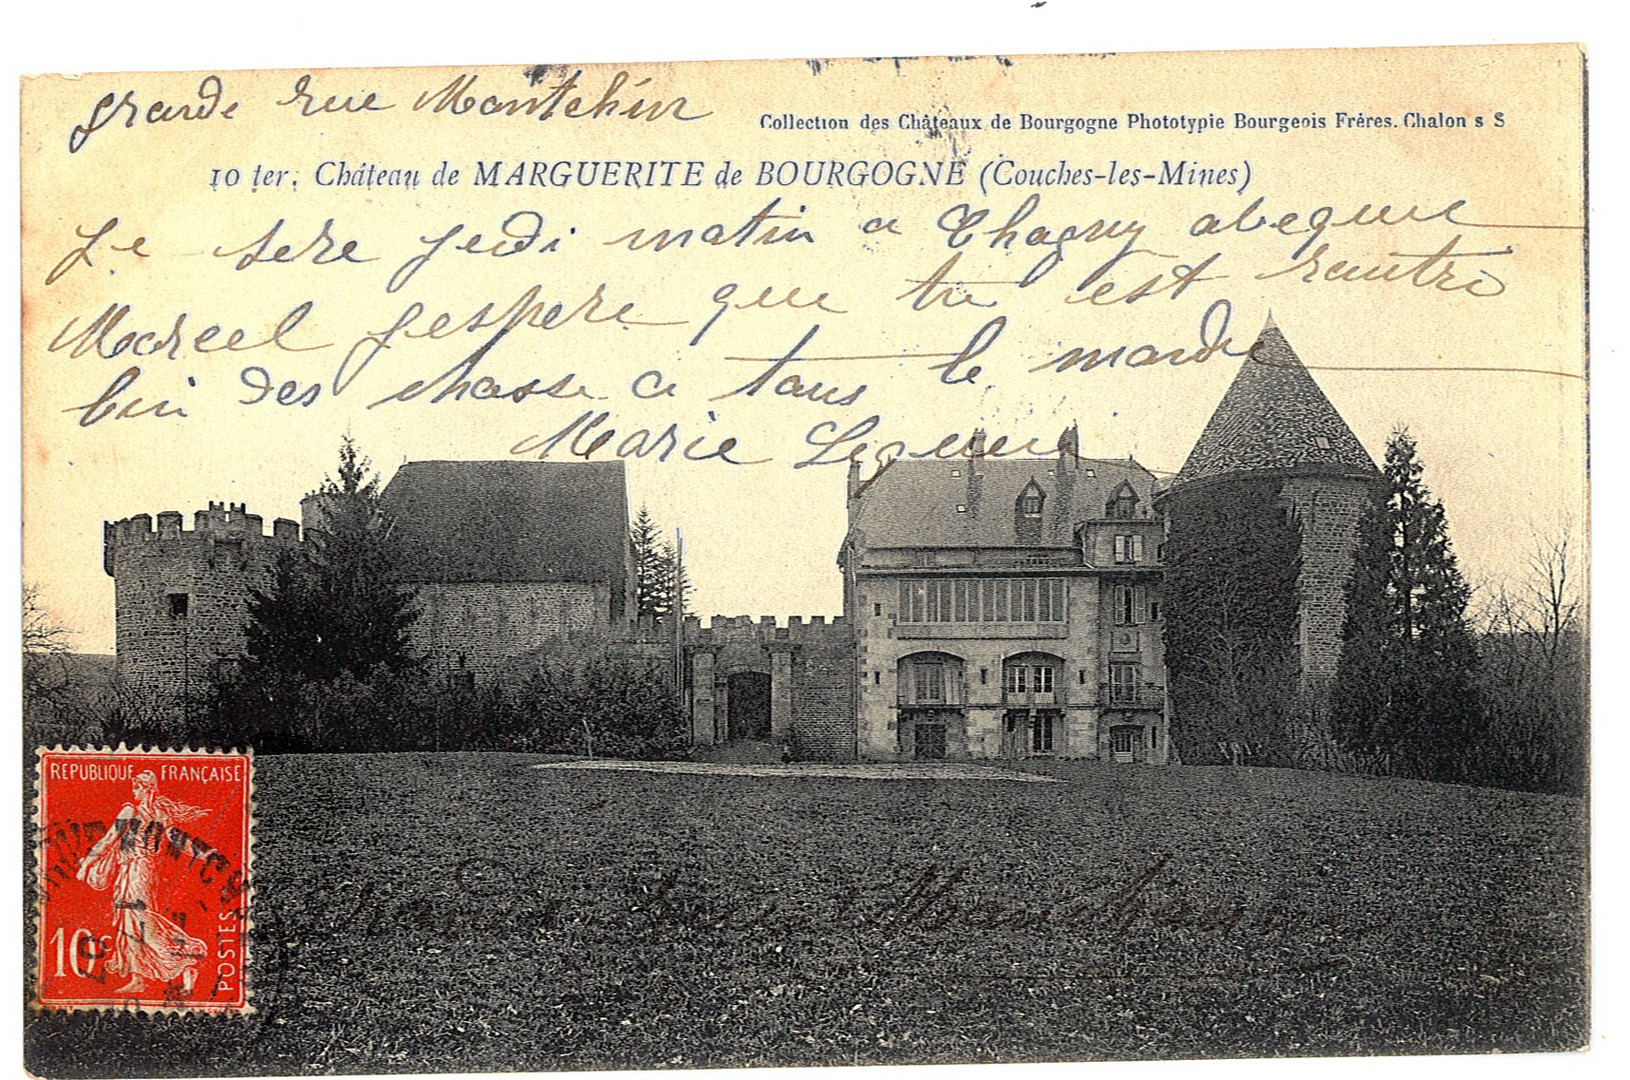 grande rue Montchin
Collection des Châteaux de Bourgogne Phototypie Bourgeois Frères. Chalon s S
10 ter. Château de MARGUERITE de BOURGOGNE (Couches-les-Mines)
Je sere jeudi matin a Chagny abeque
Marcel jespere que tu est rantré
bin des chasse a tous le marde
Marie
REPUBLIQUE FRANÇAISE
10c
POSTES